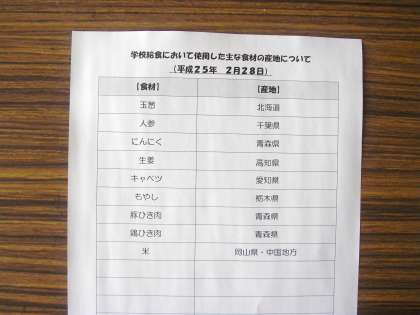 学校給食において使用した主な食材の産地について
（平成２５年　２月２８日）
【食材】　【産地】
玉葱　北海道
人参　千葉県
にんにく　青森県
生姜　高知県
キャベツ　愛知県
もやし　栃木県
豚ひき肉　青森県
鶏ひき肉　青森県
米　岡山県・中国地方